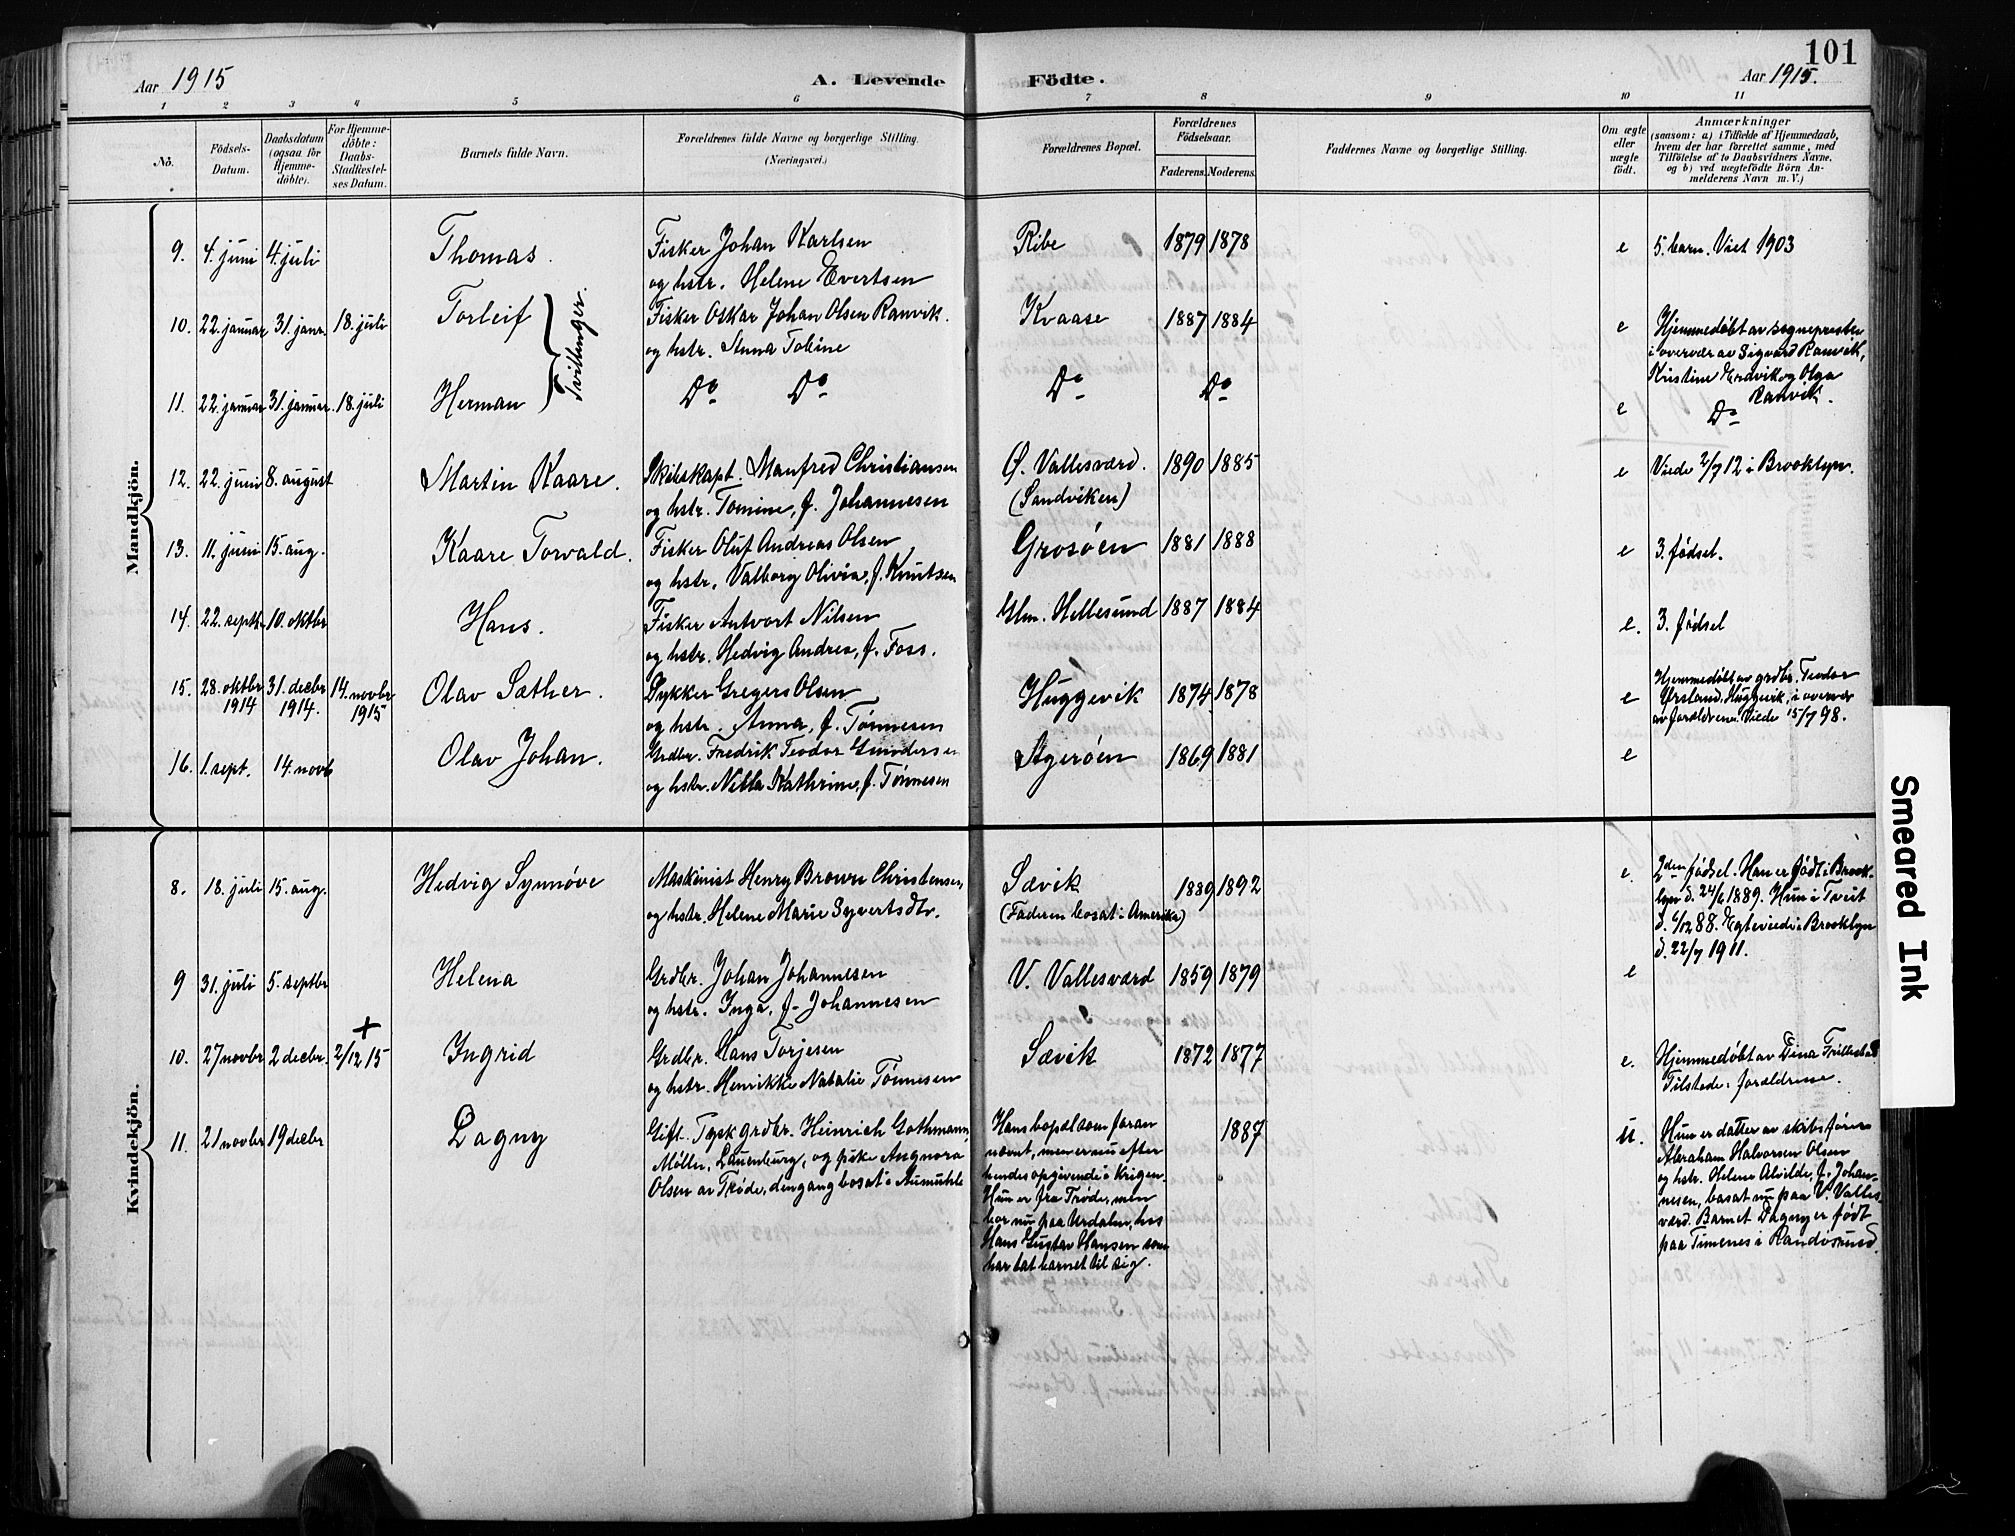 101
Aar 1915
A. Levende
Födte.
Aar 1915.
1 2 3 4 5 6 7 8 9 10 11
No.
Födsels-
Datum.
Daabsdatum
(ogsaa for
Hjemme-
döbte).
For Hjemme-
döbte:
Daabs-
Stadfæstel-
ses Datum.
Barnets fulde Navn.
Forældrenes fulde Navne og borgerlige Stilling.
(Næringsvei.)
Forældrenes Bopæl.
Forældrenes
Födselsaar.
Faderens. Moderens.
Faddernes Navne og borgerlige Stilling.
Om ægte
eller
uægte
födt.
Anmærkninger
(saasom: a) i Tilfælde af Hjemmedaab,
hvem der har forrettet samme, med
Tilföielse af to Daabsvidners Navne,
og b) ved uægtefödte Börn An-
melderens Navn m. V.)
Mandkjön.
9. 4. juni 4. juli Thomas. Fisker Johan Karlsen Ribe 1879 1878 e 5. barn. Viet 1903
og hstr. Helene Evertsen
10. 22. januar 31. janr. 18. juli Torleif Fisker Oskar Johan Olsen Ranvik. Kvaase 1887 1884 e Hjemmedøbt av sognepresten
og hstr. Anna Tobine i overvær av Sigvard Ranvik,
Tvillinger.
Kristine Endvik og Olga
Ranvik.
11. 22. januar 31. januar. 18. juli Herman Do Do Do Do e Do
12. 22. juni 8. august Martin Kaare. Skibskapt. Manfred Christiansen Ø. Vallesværd. 1890 1885 e Viede 2/7 12 i Brooklyn.
og hstr. Tomine, f. Johannesen (Sandviken)
13. 11. juni 15. aug. Kaare Torvald. Fisker Oluf Andreas Olsen Grosøen 1881 1888 e 3. fødsel.
og hstr. Valborg Olivia, f. Knutsen
14. 22. septbr 10. oktbr Hans. Fisker Antvort Nilsen Ulv. Hellesund 1887 1884 e. 3. fødsel
og hstr. Hedvig Andrea, f. Foss.
15. 28. oktbr 31. decbr 14. novbr Olav Sæther. Dykker Gregers Olsen Huggevik 1874 1878 e Hjemmedøbt av grdbr. Teodor
1914 1914. 1915 og hstr. Anna, f. Tønnesen Ørsland, Huggevik, i overvær
av forældrene. Viede 15/7 98.
16. 1. sept. 14. novb Olav Johan. Grdbr. Fredrik Teodor Gundersen Agerøen 1869 1881 e
og hstr. Nilla Kathrine, f. Tønnesen
Kvindekjön.
8. 18. juli 15. aug. Hedvig Synnøve Maskinist Henry Brown Christensen Sævik 1889 1892 e. 2den fødsel. Han er født i Brook-
og hstr. Helene Marie Syvertsdtr. (Faderen bosat i Amerika) lyn d. 24/6 1889. Hun i Tveit
d. 6/12 88. Egteviede i Brooklyn
d. 22/7 1911.
9 31. juli 5. septbr Helena Grdbr. Johan Johannesen V. Vallesværd 1859 1879 e
og hstr. Inga, f. Johannesen
+
10. 27 novbr 2 decbr. 2/12 15 Ingrid Grdbr. Hans Torjesen Sævik 1872 1877 e. Hjemmedøbt av Dina Trillestad
og hstr. Henrikke Natalie Tønnesen Tilstede: forældrene.
11. 21 novbr 19 decbr Dagny Gift Tysk grdbr. Heinrich Gothmann, 1887 u.
Møller, Lauenburg, og pike Angnora
Olsen av Trøde, dengang bosat i Aumühle
Hans bopæl som foran
nævnt, men er nu efter
hendes opgivende i Krigen.
Hun er fra Trøde, men
bor nu paa Urdalen, hos
Hans Gustav Hansen som
har tat barnet til sig.
Hun er datter av skibsfører
Abraham Halvorsen Olsen
og hstr. Helene Alvilde, f. Johan-
nesen, bosat nu paa V. Valles-
værd. Barnet Dagny er født
paa Timenes i Randøsund.
Smeared Ink